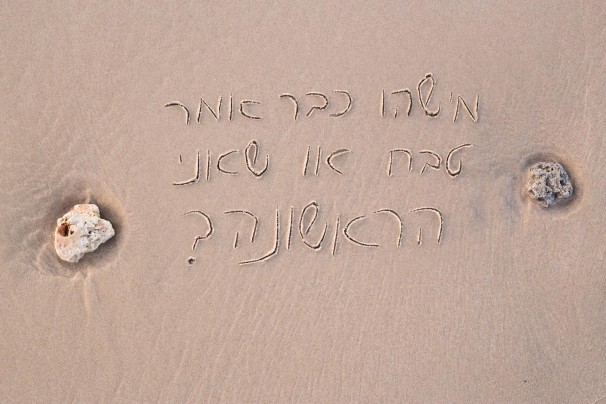 מישהו כבר אומר
טבח או שאני
הראשונה?